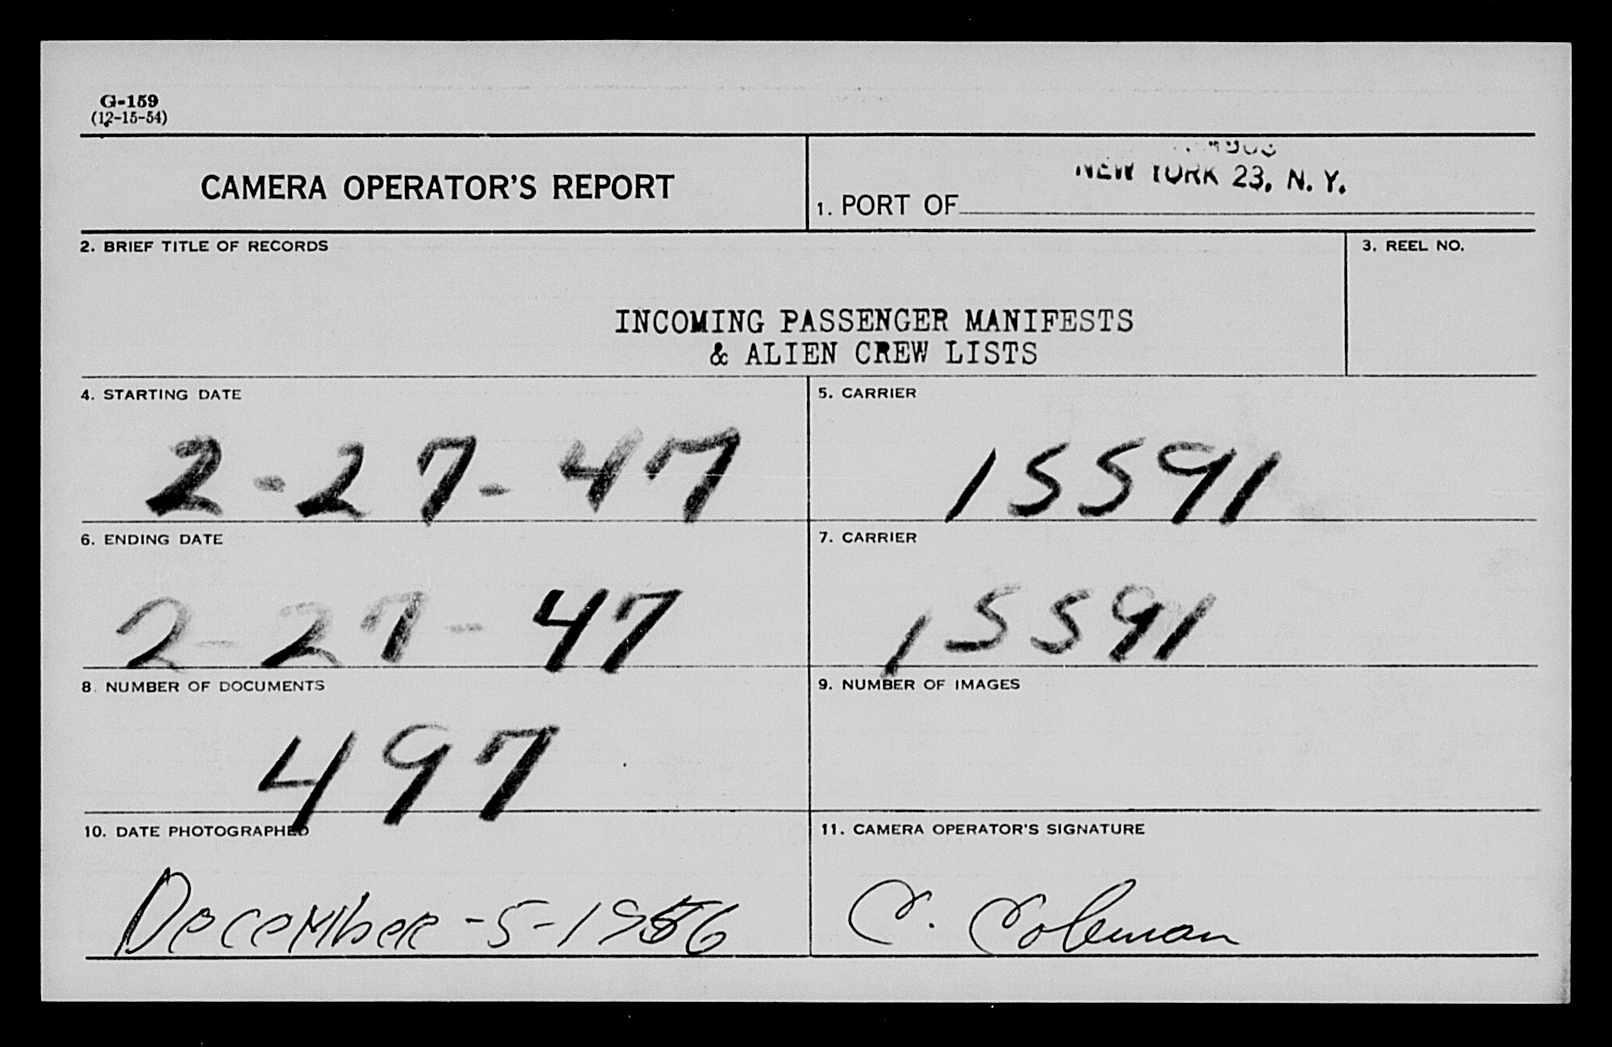 G-159
(12-15-54)
CAMERA OPERATOR'S REPORT
NEW YORK 23, N. Y.
1. PORT OF
2. BRIEF TITLE OF RECORDS
3. REEL NO.
INCOMING PASSENGER MANIFESTS
& ALIEN CREW LISTS
4. STARTING DATE
5. CARRIER
2-27-47
15591
6. ENDING DATE
7. CARRIER
2-27-47
15591
8. NUMBER OF DOCUMENTS
9. NUMBER OF IMAGES
497
10. DATE PHOTOGRAPHED
11. CAMERA OPERATOR'S SIGNATURE
December-5-1956
C. Coleman